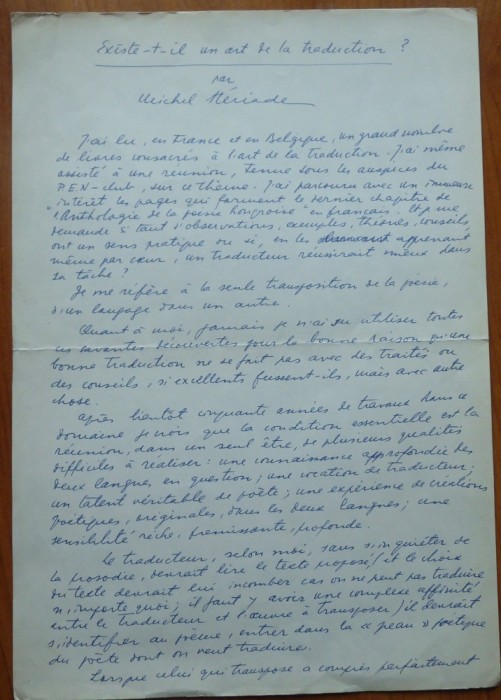 Existe-t-il un art de la traduction ?
par
Michel Stériade
J'ai lu, en France et en Belgique, un grand nombre
de livres consacrés à l'art de la traduction. J'ai même
assisté à une réunion, tenue sous les auspices du
P.E.N-club, sur ce thème. J'ai parcouru avec un immense
intérêt les pages qui forment le dernier chapitre de
"l'Anthologie de la poésie hongroise" en français. Et je me
demande si tant d'observations, exemples, théories, conseils,
ont un sens pratique ou si, en les apprenant
même par cœur, un traducteur réussirait mieux dans
sa tâche ?
Je me réfère à la seule transposition de la poésie,
d'un langage dans un autre.
Quant à moi, jamais je n'ai su utiliser toutes
ces savantes découvertes pour la bonne raison qu'une
bonne traduction ne se fait pas avec des traités ou
des conseils, si excellents fussent-ils, mais avec autre
chose.
Après bientôt cinquante années de travaux dans ce
domaine je crois que la condition essentielle est la
réunion, dans un seul être, de plusieurs qualités
difficiles à réaliser : une connaissance approfondie des
deux langues en question ; une vocation de traducteur ;
un talent véritable de poète ; une expérience de créations
poétiques, originales, dans les deux langues ; une
sensibilité riche, frémissante, profonde.
Le traducteur, selon moi, sans s'inquiéter de
la prosodie, devrait lire le texte proposé (et le choix
du texte devrait lui incomber car on ne peut pas traduire
n'importe quoi ; il faut y avoir une complexe affinité
entre le traducteur et l'œuvre à transposer) il devrait
s'identifier au poème, entrer dans la « peau » poétique
du poète dont on veut traduire.
Lorsque celui qui transpose a compris parfaitement